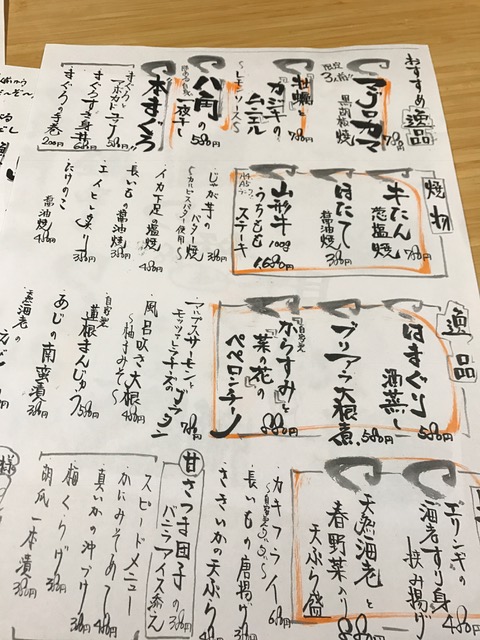 おすすめ逸品
限定3食!!
マグロカマ
黒胡椒焼 780円
牡蠣と
カジキの
ムニエル
～レモンソース～ 780円
八角の
一夜干し 580円
本まぐろ
まぐろ
アボカドユッケ 580円
まぐろすき身丼 680円
まぐろの手巻 200円
焼物
牛たん
葱塩焼 780円
ほたて
醤油焼 380円
山形牛
うちもも 100g
ステーキ 1,680円
じゃが芋の
バター焼
～カルピスバター使用～ 380円
イカ下足の塩焼 480円
長いもの醤油焼 380円
エイヒレ炙り 380円
たけのこ
醤油焼 480円
逸品
はまぐり
酒蒸し 580円
ブリアラ大根煮 580円
自家製
からすみと
菜の花の
ペペロンチーノ 880円
モッツァレラチーズの
風呂吹き大根
～柚子みそ～ 480円
自家製
蓮根まんじゅう 580円
あじの南蛮漬 380円
天然海老の
エリンギの
海老すり身
挟み揚げ 480円
天然海老と
春野菜の
天ぷら盛
カキフライ
長いもの唐揚げ
さきいかの天ぷら
甘
さつま団子の
バニラアイス添え 380円
スピードメニュー
かにみそあえ 480円
真いかの沖づけ 380円
梅くらげ 380円
胡瓜一本漬 380円